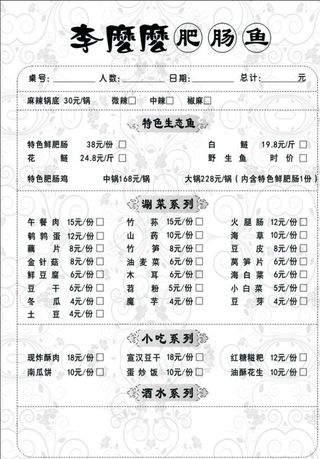 李麼麼肥肠鱼
桌号: 人数: 日期: 总计: 元
麻辣锅底 30元/锅 微辣□ 中辣□ 椒麻□
特色生态鱼
特色鲜肥肠 38元/份□ 白鲢 19.8元/斤□
花鲢 24.8元/斤□ 野生鱼 时价□
特色肥肠鸡 中锅168元/锅 大锅228元/锅(内含特色鲜肥肠1份)
涮菜系列
午餐肉 15元/份□ 竹荪 15元/份□ 火腿肠 12元/份□
鹌鹑蛋 12元/份□ 山药 10元/份□ 海草 10元/份□
藕片 8元/份□ 竹笋 8元/份□ 豆皮 8元/份□
金针菇 8元/份□ 油麦菜 6元/份□ 莴笋片 6元/份□
鲜豆腐 6元/份□ 木耳 6元/份□ 海白菜 6元/份□
豆干 6元/份□ 苕粉 5元/份□ 小白菜 5元/份□
冬瓜 4元/份□ 魔芋 4元/份□ 豆芽 4元/份□
土豆 4元/份□
小吃系列
现炸酥肉 18元/份□ 宣汉豆干 18元/份□ 红糖糍粑 12元/份□
南瓜饼 10元/份□ 蛋炒饭 10元/份□ 油酥花生 10元/份□
酒水系列